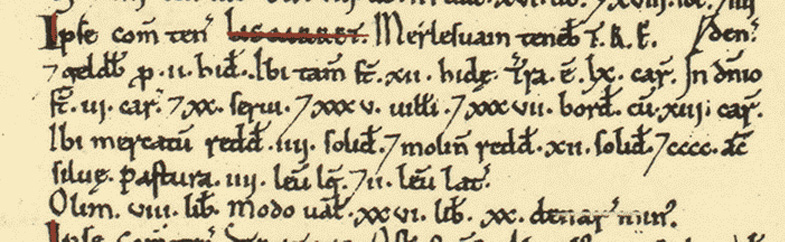 Ipse com̄ teñ LISCARRET. Merlesuain teneb̃ T.R.E. /deñ.
⁊ geldb̃ ꝑ .ii. hid̃. Ibi tam̄ st̄ .xii. hidę. Tr̃a .ē. lx. car̃. In dñio
st̄ .iii. car̃. ⁊ xx. serui. ⁊ xxxv. uilłi. ⁊ xxxvii. bord̃. cū .xiii. car̃.
Ibi mercatū redd̃ .iiii. solid̃. ⁊ molin̄ redd̃ .xii. solid̃. ⁊ cccc. ac̃
siluę. Pastura .iiii. leū lḡ. ⁊ ii. leū lat̃.
Olim. viii. lib̃. Modo uał .xxvi. lib̃. xx. denar̃ min⁹.